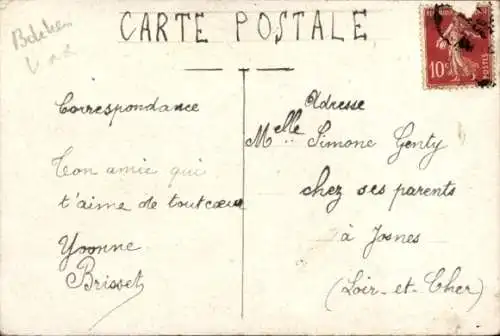 CARTE POSTALE
Correspondance
Ton amie qui
t'aime de tout cœur
Yvonne
Brisset
Adresse
Melle Simone Genty
chez ses parents
à Josnes
(Loir-et-Cher)
10c
POSTES